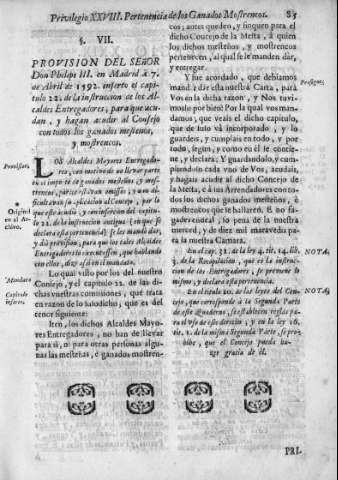 Privilegio XXVIII. Pertenencia de los Ganados Mostrencos. 85
§. VII.
PROVISION DEL SEÑOR
Don Phelipe III. en Madrid à 7.
de Abril de 1592. inserto el capitulo
22. de la instruccion de los Alcaldes
Entregadores, para que acudan,
y hagan acudir al Consejo
con todos los ganados mesteños,
y mostrencos.
Provision.
LOS Alcaldes Mayores Entregadores,
* Original
en el Archivo.
cion de este acuerdo, y con insercion del capitulo
22. de la instruccion antigua (en que se
declara esta pertenencia) se les mandò dar,
y diò provision, para que los tales Alcaldes
Entregadores
ellos, diga assi en el mandato.
*Mandato
Lo qual visto por los del nuestro
Consejo, y el capitulo 22. de las dichas
Capitulo
inserto.
vuestras comissiones, que trata
en razon de lo susodicho, que es del
tenor siguiente:
Iten, los dichos Alcaldes Mayores
Entregadores, no han de llevar
para sì, ni para otras personas algunas
las mesteñas, ò ganados mostrencos;
antes queden, y finquen para el
dicho Concejo de la Mesta, à quien
los dichos mesteños, y mostrencos
pertenecen, al qual se le manden dar,
y entregar.
Y fue acordado, que debiamos
Prosigue.
mandar dar esta nuestra Carta, para
Vos en la dicha razon, y Nos tuvimoslo
por bien: Por la qual vos mandamos,
que veais el dicho capitulo,
que de suso và incorporado, y lo
guardeis, y cumplais en todo, y por
todo, segun, y como en èl se contiene,
y declara; Y guardandolo, y cumpliendolo
cada uno de Vos, acudais,
y hagais acudir al dicho Concejo de
la Mesta, ò à sus Arrendadores con todos
los dichos ganados mesteños, ò
mostrencos que se hallaren. E no fagades
ende al, so pena de la nuestra
merced, y de diez mil maravedis para
la nuestra Camara.
En el cap. 32. de la ley 4. tit. 14. lib.
NOTA.
3. de la Recopilacion, que es la instruccion
de los Entregadores, se previene lo
mismo, y declara esta pertenencia.
En el titulo 20. de las leyes del Concejo,
NOTA.
que corresponde à la Segunda Parte
de este Quaderno, se establecen reglas para
el uso de este derecho; y en la ley 16.
tit. 2. de la misma Segunda Parte, se prohibe,
que el Concejo pueda hazer
gracia de èl.
PRI-